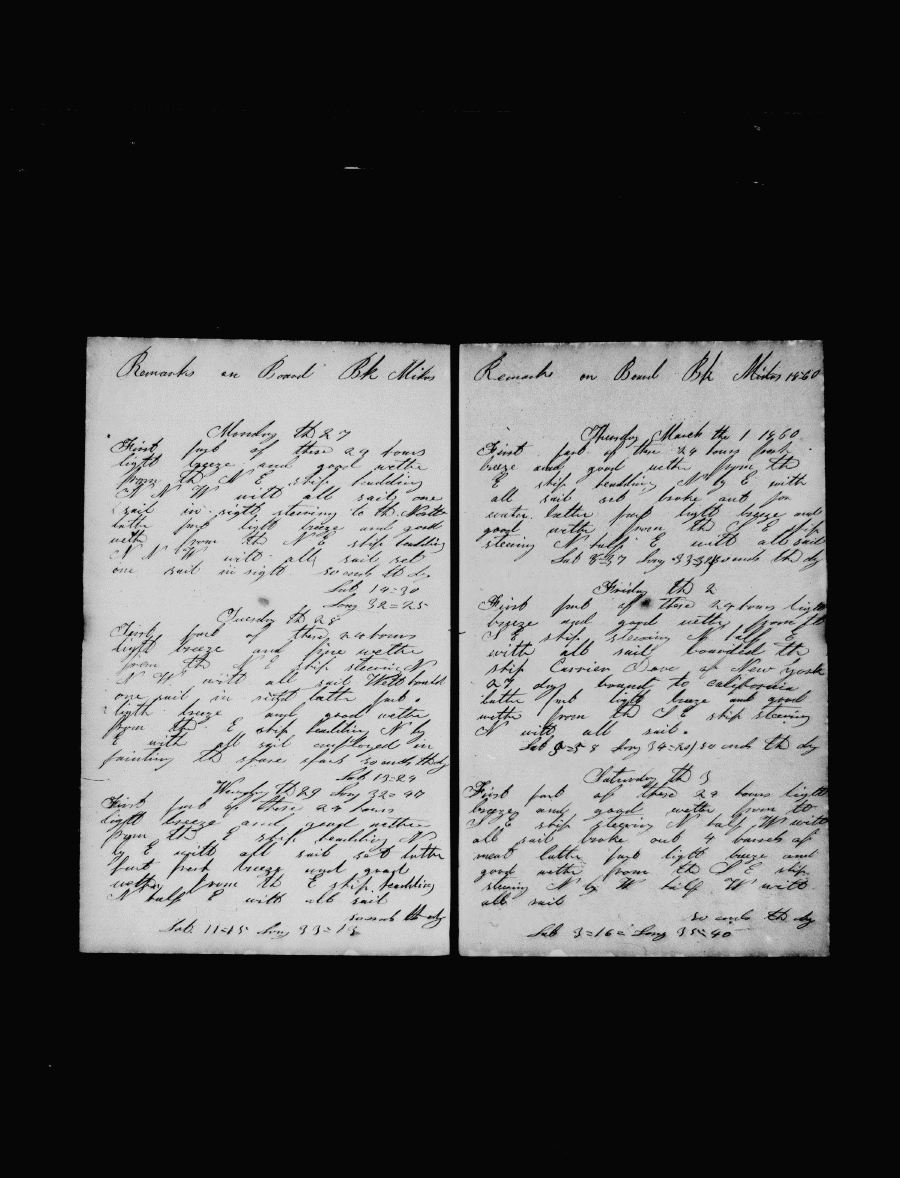 Remarks on Board Bk Midas
Monday th 27
First part of these 24 hours
light breeze and good wether
from th N E ship headding
N N W with all sails one
sail in sigth steering to th North
latter part light breeze and good
weth from th N E ship headding
N N W with all sail set
one sail in sigth so ends th dy
Lat 14=30
Long 32=25
Tuesday th 28
First part of these 24 hours
light breeze and fine wether
from th N E ship steering N
N W with all sail
one sail in sigth latter part
ligth breeze and good wether
from th E ship headding N by
E with all sail employed in
painting th spare spars so ends th dy
Lat 13=24
th 29 Long 32=47
First part of these 24 hours
light breeze and good wether
from th E ship headding N
by E with all sail set latter
part fresh breeze and good
wether from th E ship headding
N half E with all sail
so ends th dy
Lat 11=15 Long 33=18
Remarks on Board Bk Midas 1860
Thursday March the 1 1860
First part of these 24 hours fresh
breeze and good wether from th
E ship headding N by E with
all sail set broke out for
water latter part light breeze and
good wether from th S E ship
steering N half E with all sail
Lat 8=37 Long so ends th dy
Friday th 2
First part of these 24 hours light
breeze and good wether from th
S E ship steering N half E
with all sail boarded th
ship Carrier Dove of New York
27 dys bound to california
latter part light breeze and good
wether from th S E ship steering
N with all sail
Lat 5=58 Long 34=20 so ends th dy
Saturday th 3
First part of these 24 hours light
breeze and good wether from th
S E ship steering N half W with
all sail broke out 4 barrels of
meat latter part light breeze and
good wether from th S E ship
steering N by W half W with
all sail
so ends th dy
Lat 3=16= Long 35=40